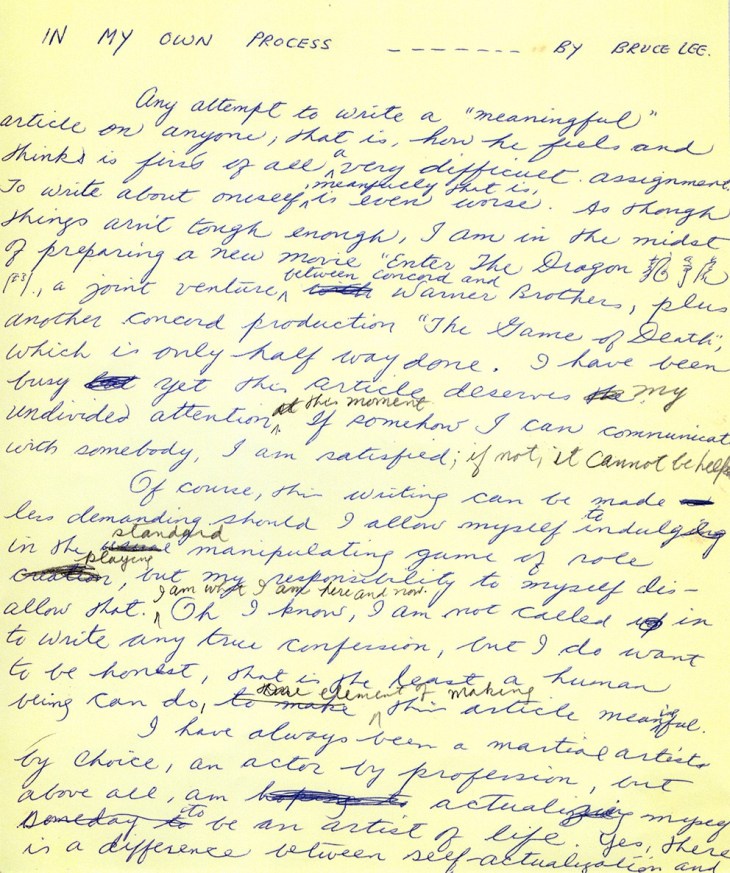 IN MY OWN PROCESS ------- BY BRUCE LEE.
Any attempt to write a "meaningful"
article on anyone, that is, how he feels and
thinks is first of all a very difficult assignment.
To write about oneself, meanfully that is, is even worse. As though
things arn't tough enough, I am in the midst
of preparing a new movie "Enter The Dragon
, a joint venture, between Concord and Warner Brothers, plus
another Concord production "The Game of Death",
which is only half way done. I have been
busy yet this article deserves my
undivided attention at this moment. If somehow I can communicat
with somebody, I am satisfied; if not, it cannot be helpe
Of course, this writing can be made
less demanding should I allow myself to indulge
in the standard manipulating game of role
playing, but my responsibility to myself dis-
allow that. I am what I am here and now. Oh I know, I am not called in
to write any true confession, but I do want
to be honest, that is the least a human
being can do, element of making this article meaningful.
I have always been a martial artist
by choice, an actor by profession, but
above all, am actualizing myself
to be an artist of life. Yes, there
is a difference between self-actualization and